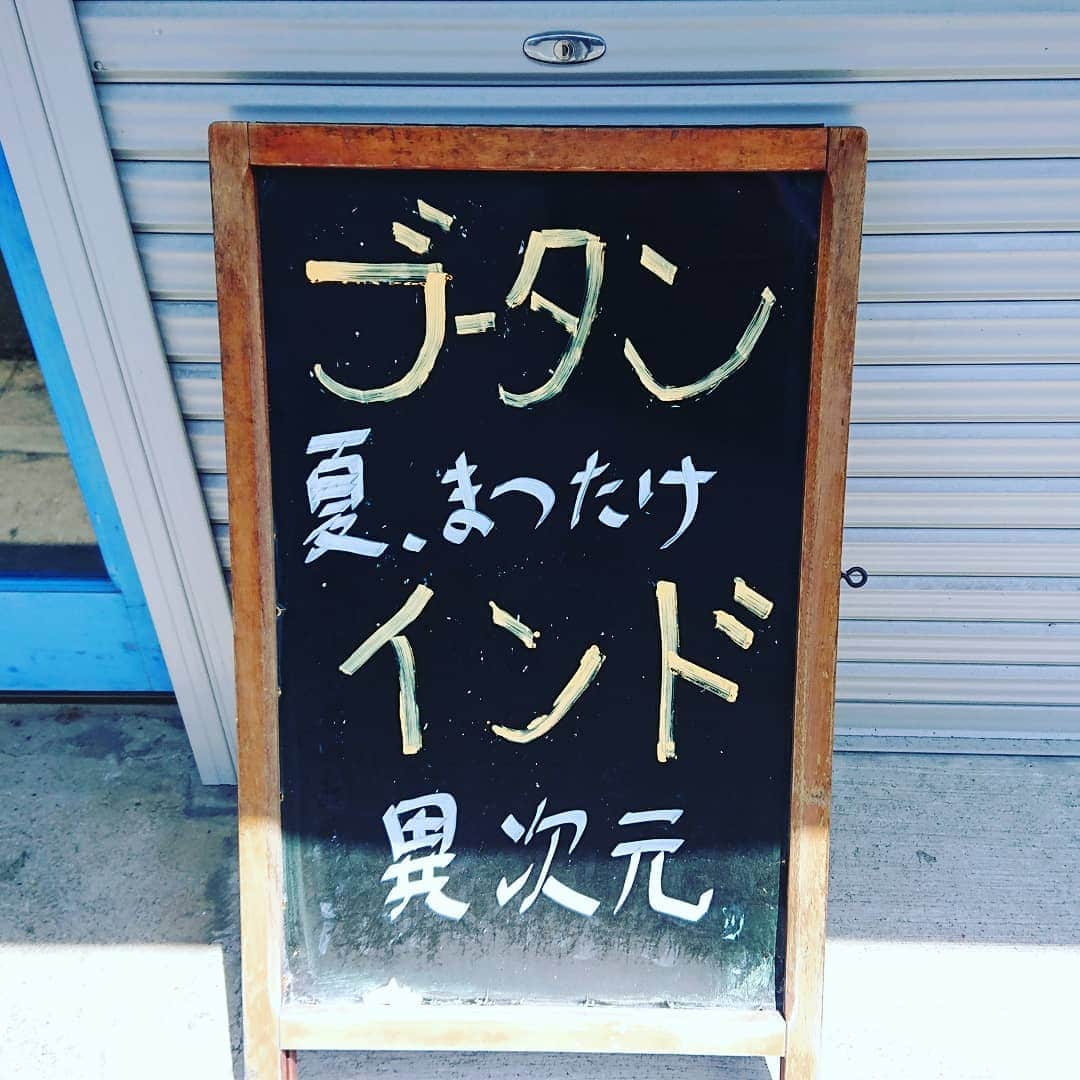 ブータン
夏、まつたけ
インド
異次元